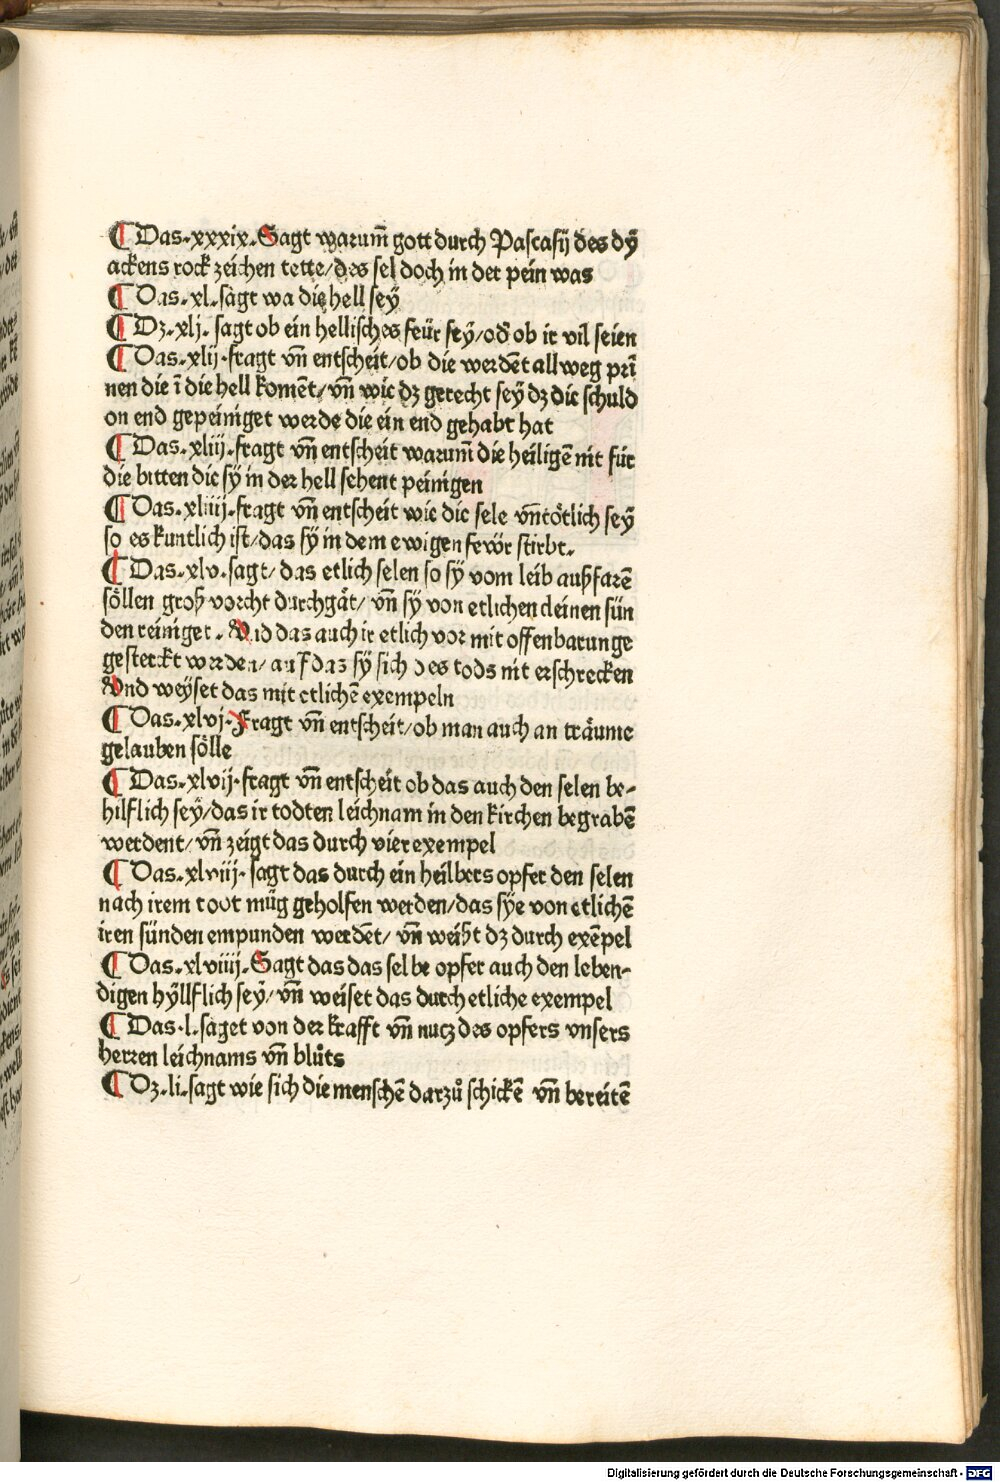 ¶ Das·xxxix·Sagt warum̄ gott durch Pascasij des dÿ
ackens rock zeichen tette/des sel doch in der pein was
¶ Das·xl·sagt wa die hell seÿ
¶ Dz·xlj· sagt ob ein hellisches feür seÿ/od̄ ob ir vil seien
¶ Das·xlij·fragt vn̄ entscheit/ob die werdēt allweg prī
nen die ī die hell komēt/vn̄ wie dz gerecht seÿ dz die schuld
on end gepeiniget werde die ein end gehabt hat
¶ Das·xliij·fragt vn̄ entscheit warum̄ die heiligē nit für
die bitten die sÿ in der hell sehent peinigen
¶ Das·xliiij·fragt vn̄ entscheit wie die sele vn̄tötlich seÿ
so es kuntlich ist/das sÿ in dem ewigen fewr stirbt.
¶ Das·xlv·sagt/das etlich selen so sÿ vom leib außfarē
söllen groß vorcht durchgåt/vn̄ sÿ von etlichen cleinen sün
den reiniget. Und das auch ir etlich vor mit offenbarunge
gesterckt werden/auf daz sÿ sich des tods nit erschrecken
Und weÿset das mit etlichē exempeln
¶ Das·xlvj·Fragt vn̄ entscheit/ob man auch an träume
gelauben sölle
¶ Das·xlvij·fragt vn̄ entscheit ob das auch den selen be-
hilflich seÿ/das ir todten leichnam in den kirchen begrabē
werdent/vn̄ zeigt das durch vier exempel
¶ Das·xlviij·sagt das durch ein heilbers opfer den selen
nach irem toot müg geholfen werden/das sÿe von etlichē
iren sünden empunden werdēt/vn̄ weißt dz durch exēpel
¶ Das·xlviiij·Sagt das das selbe opfer auch den leben-
digen hÿllflich seÿ/vn̄ weiset das durch etliche exempel
¶ Das·l·saget von der krafft vn̄ nutz des opfers vnsers
herren leichnams vn̄ blůts
¶ Dz·li·sagt wie sich die menschē darzů schickē vn̄ bereitē
Digitalisierung gefördert durch die Deutsche Forschungsgemeinschaft - DFG